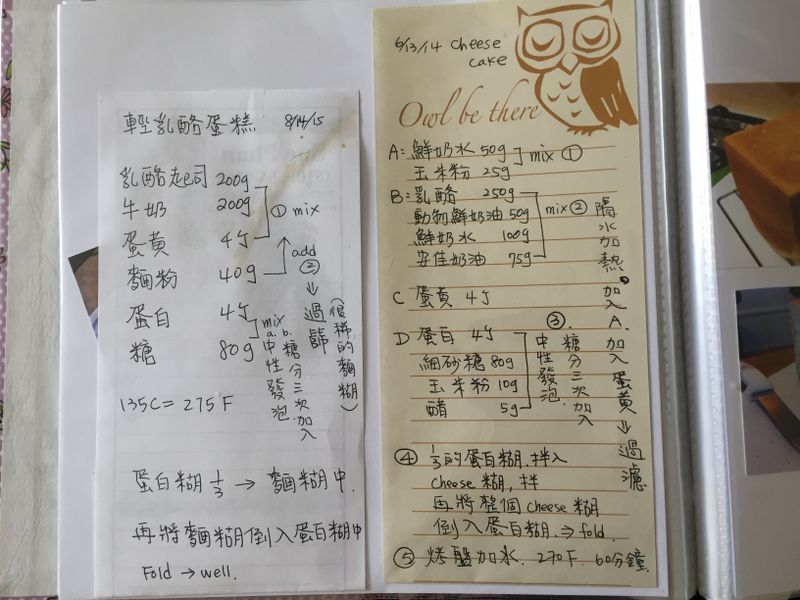 輕乳酪蛋糕 8/14/15
乳酪起司 200g
牛奶 200g
蛋黃 4个
① mix
麵粉 40g
add ② ⇒ 過篩
(很稀的麵糊)
蛋白 4个
糖 80g
mix
a. b.
中性發泡.
糖分三次加入
135C = 275F
蛋白糊 1/3 → 麵糊中.
再將麵糊倒入蛋白糊中
Fold → well.
6/13/14 cheese
cake
Owl be there
A: 鮮奶水 50g
玉米粉 25g
mix ①
B: 乳酪 250g
動物鮮奶油 50g
鮮奶水 100g
安佳奶油 75g
mix ②
隔水加熱, 加入 A. 加入蛋黃 ⇒ 過濾
C 蛋黃 4个
D 蛋白 4个
細砂糖 80g
玉米粉 10g
醋 5g
③.
中性發泡.
糖分三次加入
④ 1/3的蛋白糊. 拌入
cheese 糊, 拌
再將整個 cheese 糊
倒入蛋白糊. ⇒ fold.
⑤ 烤盤加水. 270F. 60分鐘.